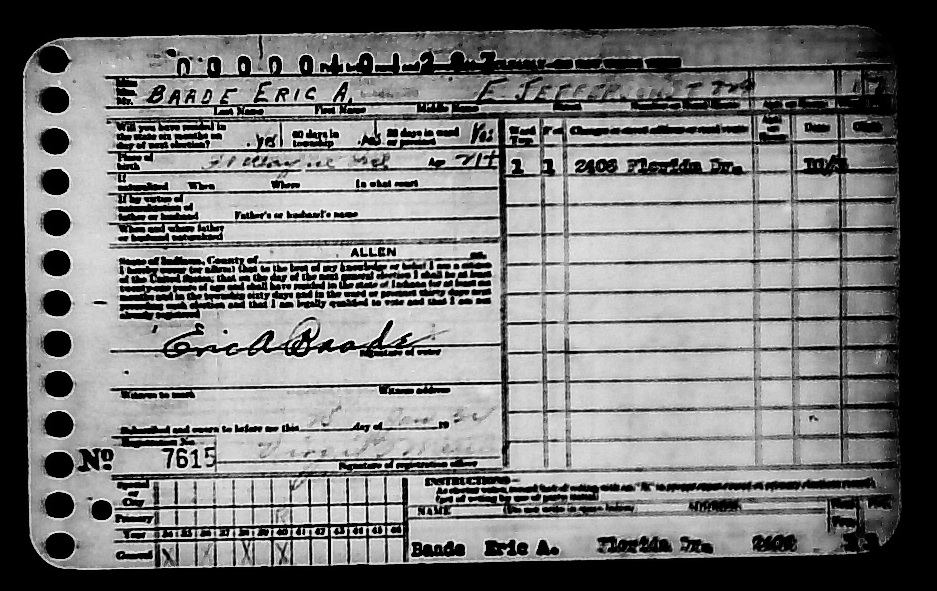 Mr. BAADE ERIC A. E. JEFFERSON ST
Last Name First Name Middle Name Street Number or Rural Route
Will you have resided in the state six months on day of next election? yes 60 days in township yes 30 days in ward or precinct Yes
Place of birth Ft Wayne Ind Age
If naturalized When Where In what court
If by virtue of naturalization of father or husband Father's or husband's name
When and where father or husband naturalized
Change of street address or rural route Date
1 1 2403 Florida Dr.
State of Indiana, County of ALLEN ss.
I hereby swear (or affirm) that to the best of my knowledge or belief I am a citizen
of the United States; that on the day of the next general election I shall be at least
twenty-one years of age and shall have resided in the state of Indiana for at least six
months and in the township sixty days and in the ward or precinct thirty days next
before such election and that I am legally qualified to vote and that I am not
already registered.
Eric A Baade
Signature of voter
Witness to mark Witness address
Subscribed and sworn to before me this day of 19
Registration No.
No 7615
Signature of registration officer
Special or City
Primary R
Year 34 35 36 37 38 39 40 41 42 43 44 45 46
General X X X X
INSTRUCTIONS—
NAME (Do not write in space below) ADDRESS Ward
Baade Eric A. Florida Dr. 2403